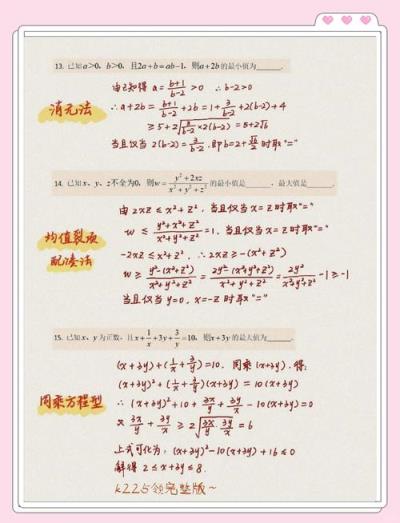 13. 已知a＞0，b＞0，且2a+b=ab-1，则a+2b的最小值为______.
消元法
由已知得 a = \frac{b+1}{b-2} > 0 ∴ b-2>0
∴ a+2b = \frac{b+1}{b-2} + 2b = 1 + \frac{3}{b-2} + 2(b-2) + 4
≥ 5+2\sqrt{\frac{3}{b-2}×2(b-2)} = 5+2\sqrt{6}
当且仅当 2(b-2) = \frac{3}{b-2}, 即b=2+\frac{\sqrt{6}}{2} 时取"="
14. 已知x、y、z不全为0，则w=\frac{y²+2xz}{x²+y²+z²}的最小值是______，最大值是______.
均值裂项
配凑法
由 2xz ≤ x²+z², 当且仅当 x=z 时取"="
w ≤ \frac{y²+x²+z²}{x²+y²+z²} = 1, 当且仅当 x=z 时取"="
-2xz ≤ x²+z², ∴ 2xz ≥ -(x²+z²)
w ≥ \frac{y²-(x²+z²)}{x²+y²+z²} = \frac{2y²-(x²+y²+z²)}{x²+y²+z²} = \frac{2y²}{x²+y²+z²} -1 ≥ -1
当且仅当 y=0, x=-z 时取"="
15. 已知x、y为正数，且x+\frac{1}{x}+3y+\frac{3}{y}=10，则x+3y的最大值为______.
同乘方程型
(x+3y)+(\frac{1}{x}+\frac{3}{y})=10, 同乘(x+3y), 得:
(x+3y)²+(\frac{1}{x}+\frac{3}{y})(x+3y) = 10(x+3y)
∴ (x+3y)²+10+\frac{3x}{y}+\frac{3y}{x}-10(x+3y)=0
又 \frac{3x}{y}+\frac{3y}{x} ≥ 2\sqrt{\frac{3x}{y}·\frac{3y}{x}} = 6
上式可化为: (x+3y)²-10(x+3y)+16 ≤ 0
解得 2≤x+3y≤8.
k225领完整版~